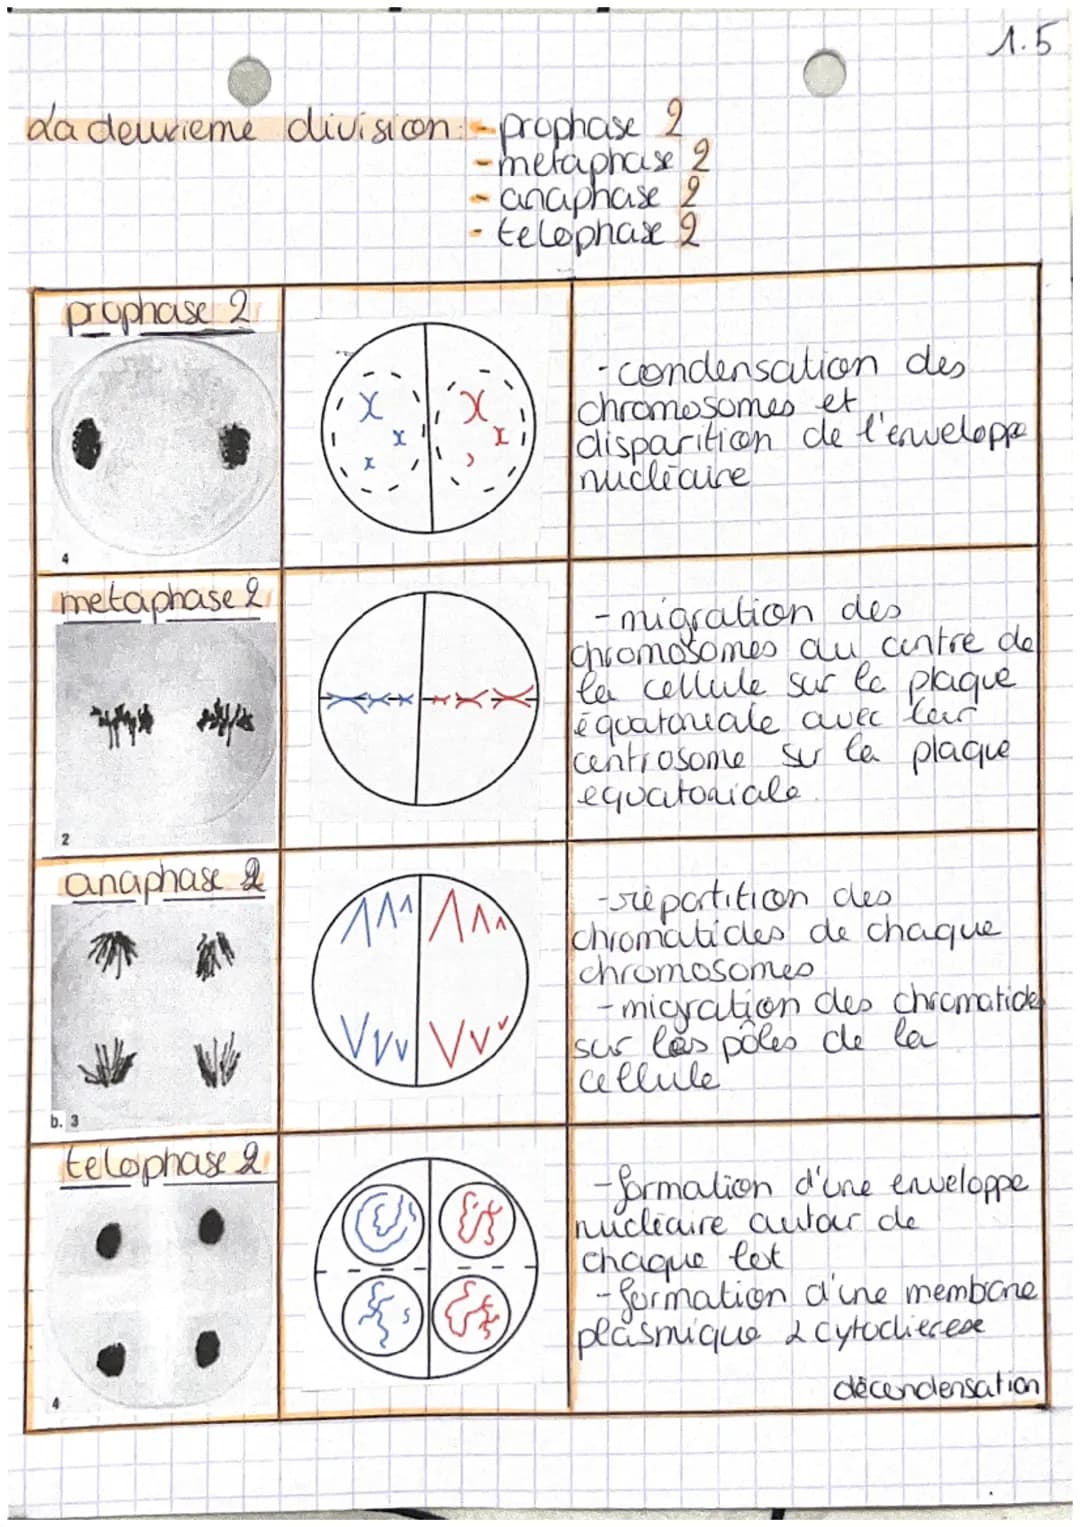 1.5
La deuxieme division: - prophase 2
- metaphase 2
- anaphase 2
- telophase 2
prophase 2
4
- condensation des
chromosomes et
disparition de l'enveloppe
nucléaire
metaphase 2
2
- migration des
chromosomes au centre de
la cellule sur la plaque
équatoriale avec leur
centrosome sur la plaque
equatoriale.
anaphase 2
b. 3
- répartition des
chromatides de chaque
chromosomes
- migration des chromatides
sur les pôles de la
cellule
telophase 2
4
- formation d'une enveloppe
nucléaire autour de
chaque lot
- formation d'une membrane
plasmique 2 cytodierese
décondensation